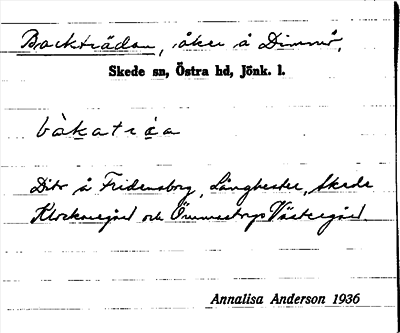 Backträdan, åker å Dimmö,
Skede sn, Östra hd, Jönk. l.
bàkatráa
Dito å Fridensborg, Långhester, Skede
Klockaregård och Ömmestorps Västergård.
Annalisa Anderson 1936